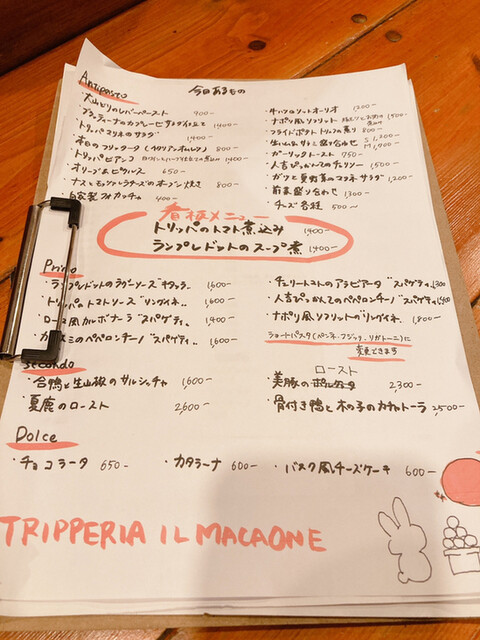 Antipasto
今日あるもの
・大山どりのレバーペースト 900-
1400-
・トリッパマリネのサラダ 1400-
・本日のフリッタータ(イタリアンオムレツ) 800-
・トリッパビアンコ 1400-
・オリーブ&ピクルス 650-
・ナスとモッツァレラチーズのオーブン焼き 800-
・自家製フォカッチャ 400-
・牛ハツのソットオーリオ 1200-
・ナポリ風ソフリット 1500-
・フライドポテト トリュフの薫り 800-
S 1,200-
M 1,900-
・ガーリックトースト 750-
・人吉ぴっかんてのチョリソー 1500-
・ガツと夏野菜のコラトゥーラサラダ 1,200-
・前菜盛り合わせ 1300-
・チーズ各種 500~
看板メニュー
トリッパのトマト煮込み 1400-
ランプレドットのスープ煮 1400-
Primo
・ランプレドットのラグーソース 1,600-
・トリッパのトマトソース "リングイネ" 1600-
・ローマ風カルボナーラ "スパゲティ" 1,400-
ペペロンチーノ "スパゲティ" 1600-
・チェリートマトのアラビアータ "スパゲティ" 1300
・人吉ぴっかんてのペペロンチーノ "スパゲティ"
・ナポリ風ソフリットの "リングイネ" 1,800-
ショートパスタ(ペンネ、フジッリ、リガトーニ)に
変更できます
Secondo
・合鴨と生山椒のサルシッチャ 1,600-
・夏鹿のロースト 2600-
ロースト
・美豚の 2,300-
・骨付き鴨と木の子のカチャトーラ 2,500-
Dolce
・チョコラータ 650-
・カタラーナ 600-
・バスク風チーズケーキ 600-
TRIPPERIA IL MACAONE